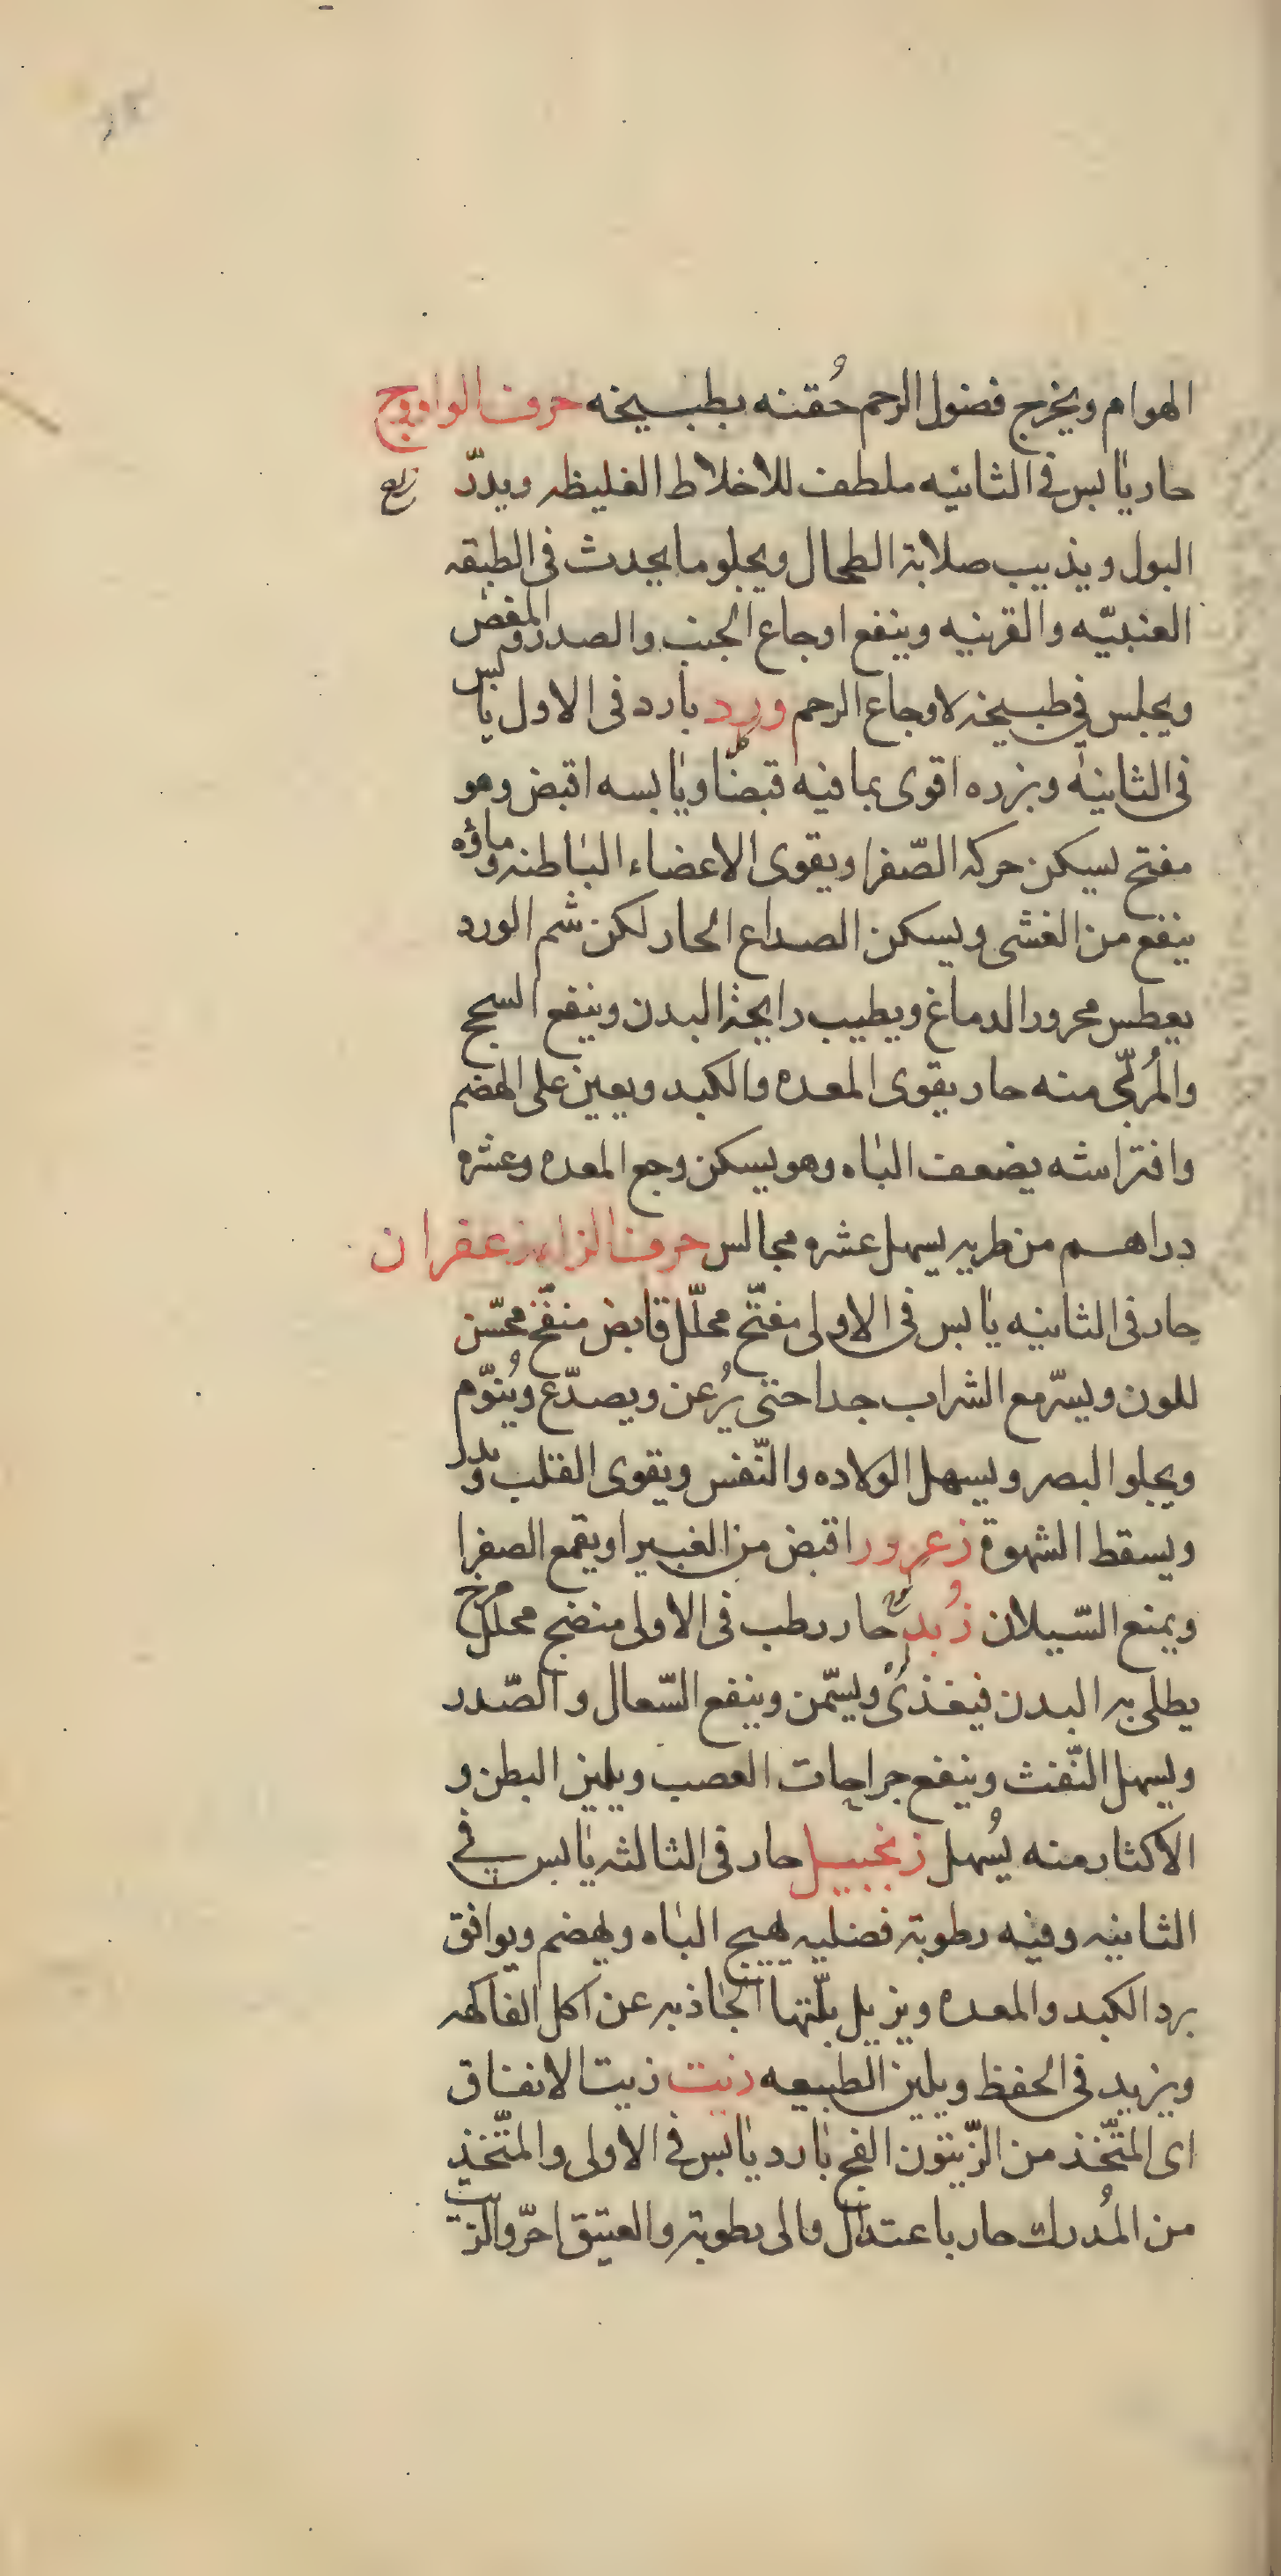 الهوام ويخرج فضول الرحم حُقنه بطبيخه حرف الواو وج
حار يابس فى الثانيه ملطف للاخلاط الغليظه ويدرّ
البول ويذيب صلابة الطحال ويجلو ما يحدث فى الطبقه
العنبيّه والقرنيه وينفع اوجاع الجنب والصدر والمغص
ويجلس في طبيخه لاوجاع الرحم ورد بارد فى الاول يابس
فى الثانيه وبزره اقوى بما فيه قبضا ويابسه اقبض وهو
مفتح يسكن حركه الصّفرا ويقوى الاعضاء الباطنه وماؤه
ينفع من الغشى ويسكن الصداع الحار لكن شم الورد
يعطس محرور الدماغ ويطيب رايحة البدن وينفع السحج
والمُربّى منه حار يقوى المعده والكبد ويعين على الهضم
وافتراشه يضعف الباه وهو يسكن وجع المعده وعشره
دراهم من طريه يسهل عشره مجالس حرف الزاء زعفران
حار فى الثانيه يابس فى الاولى مفتّح محلّل قابض منفّخ محسّن
للون ويسرّ مع الشراب جدا حتى يُرعن ويصدّع ويُنوّم
ويجلو البصر ويسهل الولاده والنّفس ويقوى القلب ويدر
ويسقط الشهوة زعرور اقبض من الغبيرا ويقمع الصفرا
ويمنع السّيلان زُبد حار رطب فى الاولى منضج محلل مرخ
يطلى به البدن فيغذى ويسّمن وينفع السّعال والصّدر
ويسهل النّفث وينفع جراحات العصب ويلين البطن و
الاكثار منه يُسهل زنجبيل حار فى الثالثه يابس في
الثانيه وفيه رطوبة فضليه يهيج الباه ويهضم ويوافق
برد الكبد والمعده ويزيل بلّتها الحاذبه عن اكل الفاكهه
ويزيد فى الحفظ ويلين الطبيعه زيت زيت الانفاق
اى المتّخذ من الزّيتون الفج بارد يابس فى الاولى والمتّخذ
من المُدرك حار باعتدال والى رطوبة والعتيق احرّ والزيت